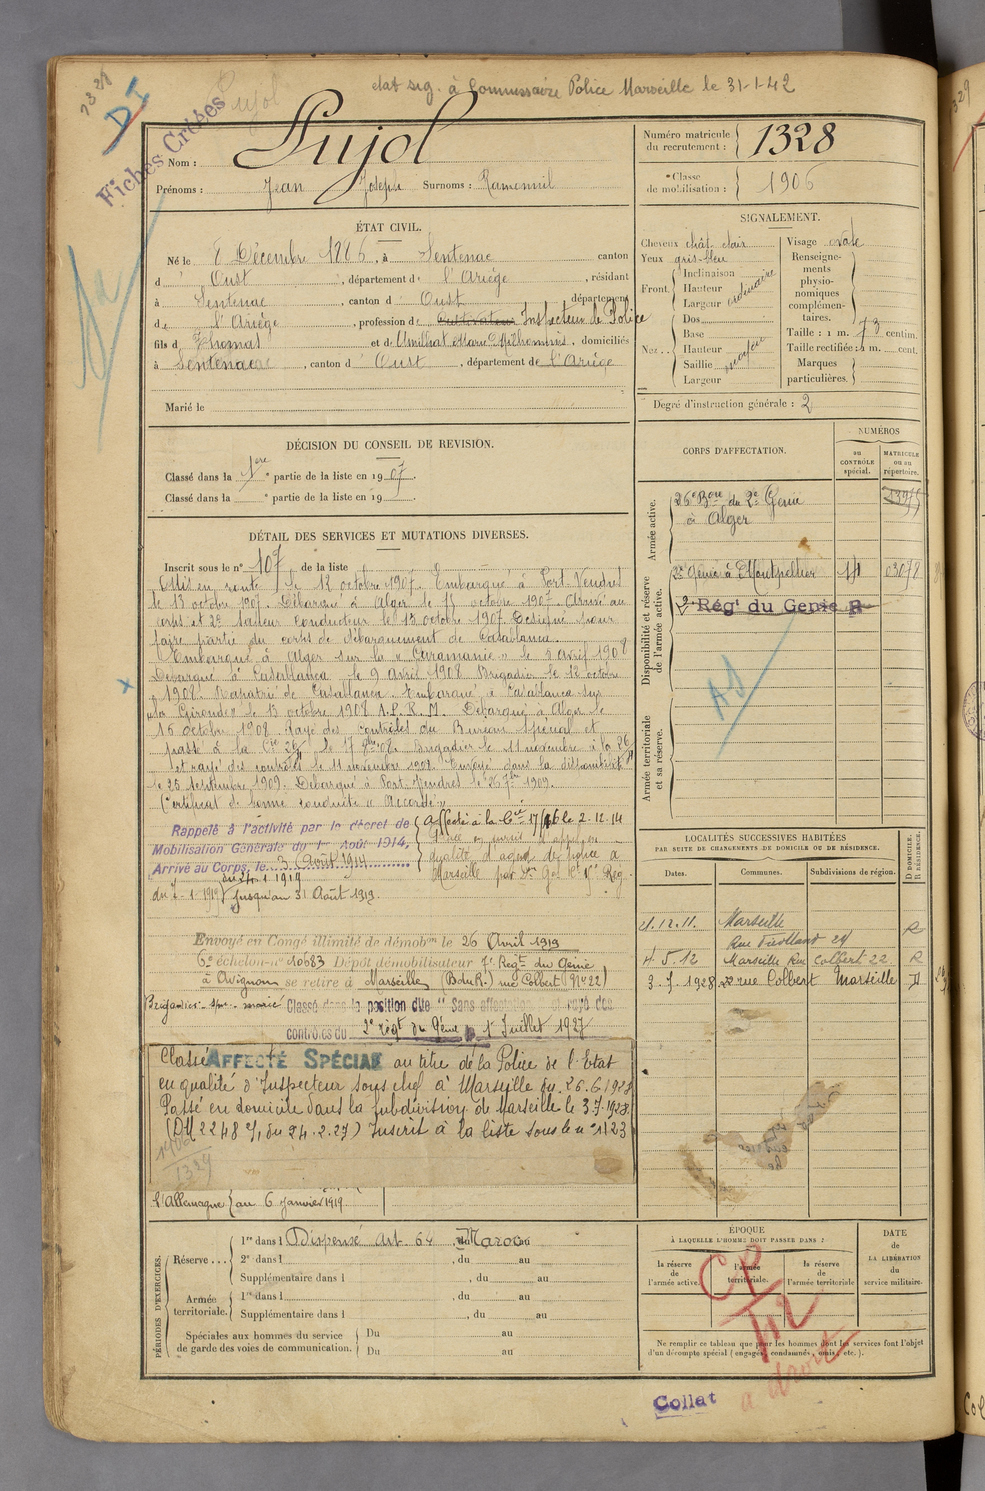 1328
DI
Pujol
etat sig. à Commissaire Police Marseille le 31-1-42
Fiches Créées
Nom : Pujol
Prénoms : Jean Joseph Surnoms : Ramounil
Numéro matricule du recrutement : 1328
Classe de mobilisation : 1906
ÉTAT CIVIL.
Né le 8 Décembre 1886, à Sentenac canton
d' Oust, département de l'Ariège, résidant
à Sentenac, canton d' Oust département
de l'Ariège, profession de Cultivateur Inspecteur de Police
fils de Thomas et de Amilhat Marie, domiciliés
à Sentenac, canton d' Oust, département de l'Ariège
Marié le
SIGNALEMENT.
Cheveux chât clair
Yeux gris-bleu
Front. Inclinaison
Hauteur
Largeur
ordinaire
Nez.. Dos
Base
Hauteur
Saillie
Largeur
moyen
Visage ovale
Renseignements physionomiques complémentaires.
Taille : 1 m. 73 centim.
Taille rectifiée : 1 m. cent.
Marques particulières.
Degré d'instruction générale : 2
DÉCISION DU CONSEIL DE REVISION.
Classé dans la 1ère partie de la liste en 1907.
Classé dans la partie de la liste en 19
DÉTAIL DES SERVICES ET MUTATIONS DIVERSES.
Inscrit sous le n° 107 de la liste
Mis en route le 12 octobre 1907. Embarqué à Port-Vendres
le 13 octobre 1907. Débarqué à Alger le 15 octobre 1907. Arrivé au
corps et 2e sapeur conducteur le 13 octobre 1907. Désigné pour
faire partie du corps de débarquement de Casablanca.
Embarqué à Alger sur la "Caramanie" le 5 avril 1908
Débarqué à Casablanca le 9 avril 1908 Brigadier le 12 octobre
1908. Rapatrié de Casablanca. Embarqué à Casablanca sur
"la Gironde" le 13 octobre 1908 A.P.R.M. Débarqué à Alger le
16 octobre 1908. Rayé des contrôles du Bureau spécial et
passé à la Cie 26 le 17 8bre 08. Brigadier le 11 novembre à la 26
et rayé des contrôles le 11 novembre 1908. Envoyé dans la disponibilité
le 25 septembre 1909. Débarqué à Port-Vendres le 26 7bre 1909.
Certificat de bonne conduite "Accordé"
Rappelé à l'activité par le décret de
Mobilisation Générale du 1er Août 1914,
Arrivé au Corps, le 3 Août 1914
Affecté à la Cie 17/16 le 2.12.14
Placé en sursis d'appel en
qualité d'agent de police à
Marseille par
jusqu'au 31 Août 1919.
Envoyé en Congé illimité de démobon le 26 Avril 1919
6e échelon n° 10683 Dépôt démobilisateur 7e Regt du Génie
à Avignon se retire à Marseille (B du R.) rue Colbert (N° 22)
Classé dans la position dite "Sans affectation" et rayé des
contrôles du 2e régt du Génie 1er Juillet 1927
Classé AFFECTÉ SPÉCIAL au titre de la Police de l'Etat
en qualité d'Inspecteur sous chef à Marseille du 26.6.1928
Passé en domicile dans la subdivision de Marseille le 3.7.1928.
(DM 2248 5/1 du 24.2.27) Inscrit à la liste sous le n° 1123
1906
1329
l'Allemagne au 6 janvier 1919.
CORPS D'AFFECTATION.
NUMÉROS
au CONTRÔLE spécial.
MATRICULE ou au répertoire.
Armée active.
26e Bon du 2e Génie
à Alger
Disponibilité et réserve de l'armée active.
2e Génie à Montpellier
2e Rég' du Génie R
AS
Armée territoriale et sa réserve.
LOCALITÉS SUCCESSIVES HABITÉES
PAR SUITE DE CHANGEMENTS DE DOMICILE OU DE RÉSIDENCE.
Dates. Communes. Subdivisions de région. D DOMICILE. R RÉSIDENCE.
21.12.11. Marseille R
4.5.12 Marseille Rue Colbert 22 R
3.7.1928 22 rue Colbert Marseille D
PÉRIODES D'EXERCICES.
Réserve... 1re dans l Dispensé Art. 64 Maroc au
2e dans l , du au
Supplémentaire dans l , du au
Armée territoriale. 1re dans l , du au
Supplémentaire dans l , du au
Spéciales aux hommes du service de garde des voies de communication.
Du au
Du au
ÉPOQUE
À LAQUELLE L'HOMME DOIT PASSER DANS :
la réserve de l'armée active.
l'armée territoriale.
la réserve de l'armée territoriale
DATE de LA LIBÉRATION du service militaire.
Ne remplir ce tableau que pour les hommes dont les services font l'objet
d'un décompte spécial (engagés, condamnés, omis, etc.).
CP
a droit
Collat